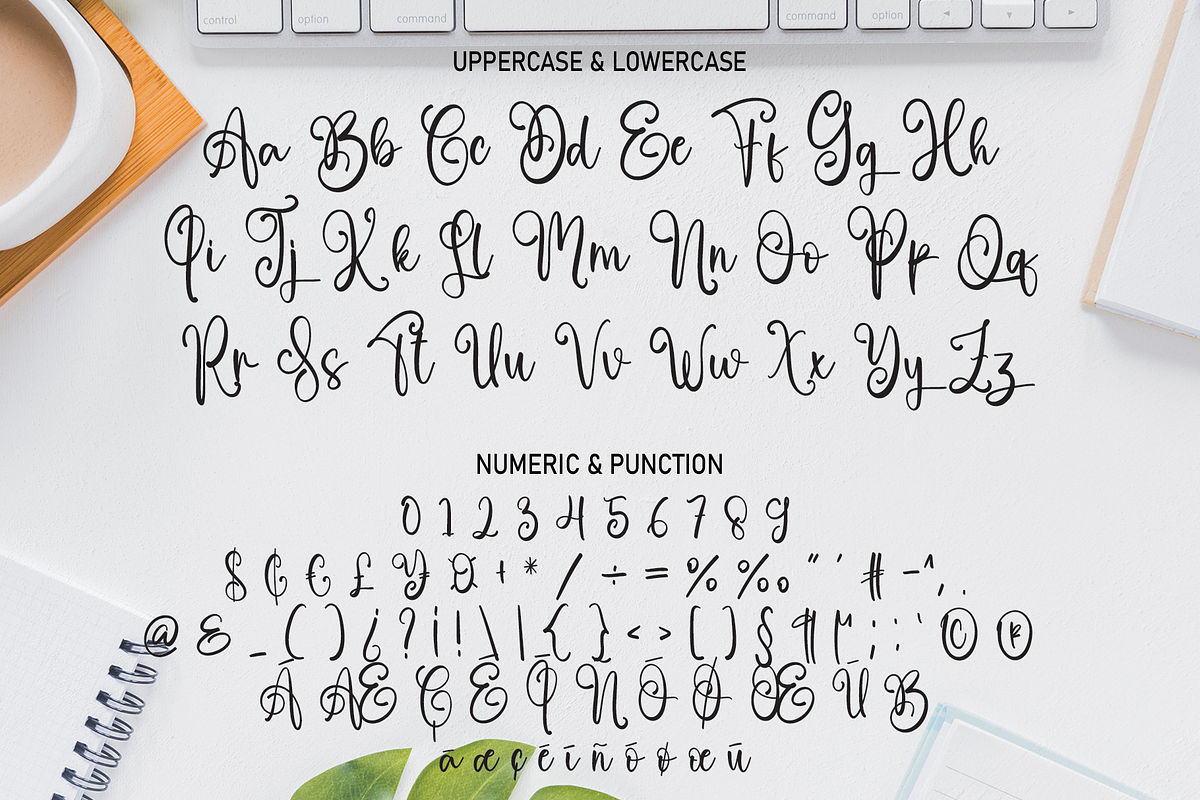 control option command command option
UPPERCASE & LOWERCASE
Aa Bb Cc Dd Ee Ff Gg Hh
Ii Jj Kk Ll Mm Nn Oo Pp Qq
Rr Ss Tt Uu Vv Ww Xx Yy Zz
NUMERIC & PUNCTION
0 1 2 3 4 5 6 7 8 9
$ ¢ € £ ¥ ¤ + * / ÷ = % ‰ " ' # - ^ , .
@ & _ ( ) ¿ ? ¡ ! \ | { } < > [ ] § ¶ µ ; : ' © ®
Ā Æ Ç Ē Ī Ñ Ō Ø Œ Ū ß
ā æ ç ē ī ñ ō ø œ ū